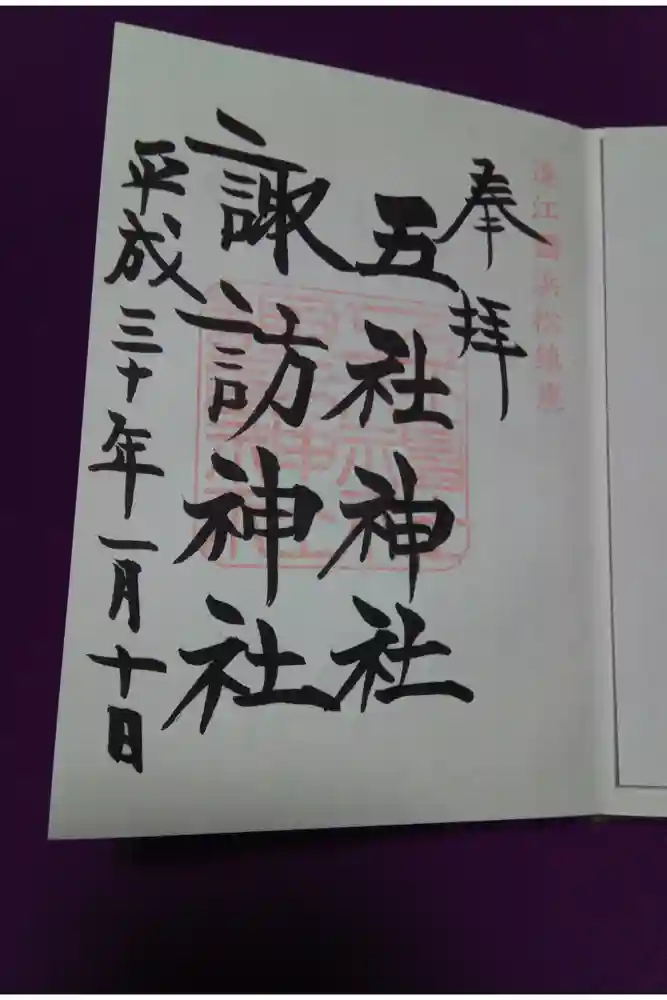 遠江國浜松鎮座
奉拝
五社神社
諏訪神社
平成三十年一月十日